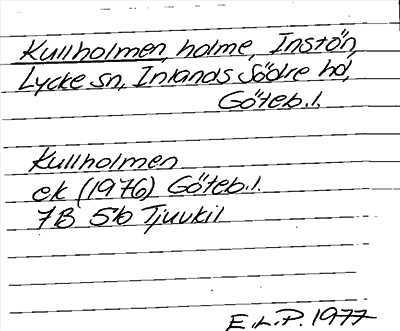 Kullholmen, holme, Instön,
Lycke sn, Inlands Södre hd,
Göteb.l.
Kullholmen
ek (1976) Göteb.l.
7B 5b Tjuvkil
E.L.P. 1977